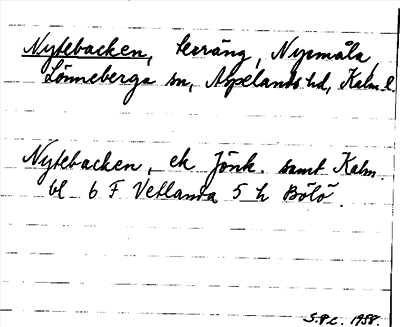 Nytebacken, terräng, Nymåla,
Lönneberga sn, Aspelands hd, Kalm. l.
Nytebacken, ek Jönk. samt Kalm.
bl 6 F Vetlanda 5 h Bölö.
S.P.L. 1958.